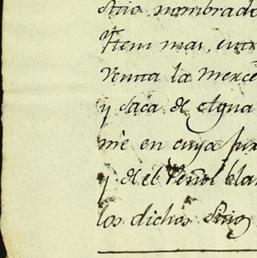 Sitio nombrado
Ytem mas, entr
Venta la Merce
y saca de Agua
me en cuya
y del Peñol
los dichos Sitio